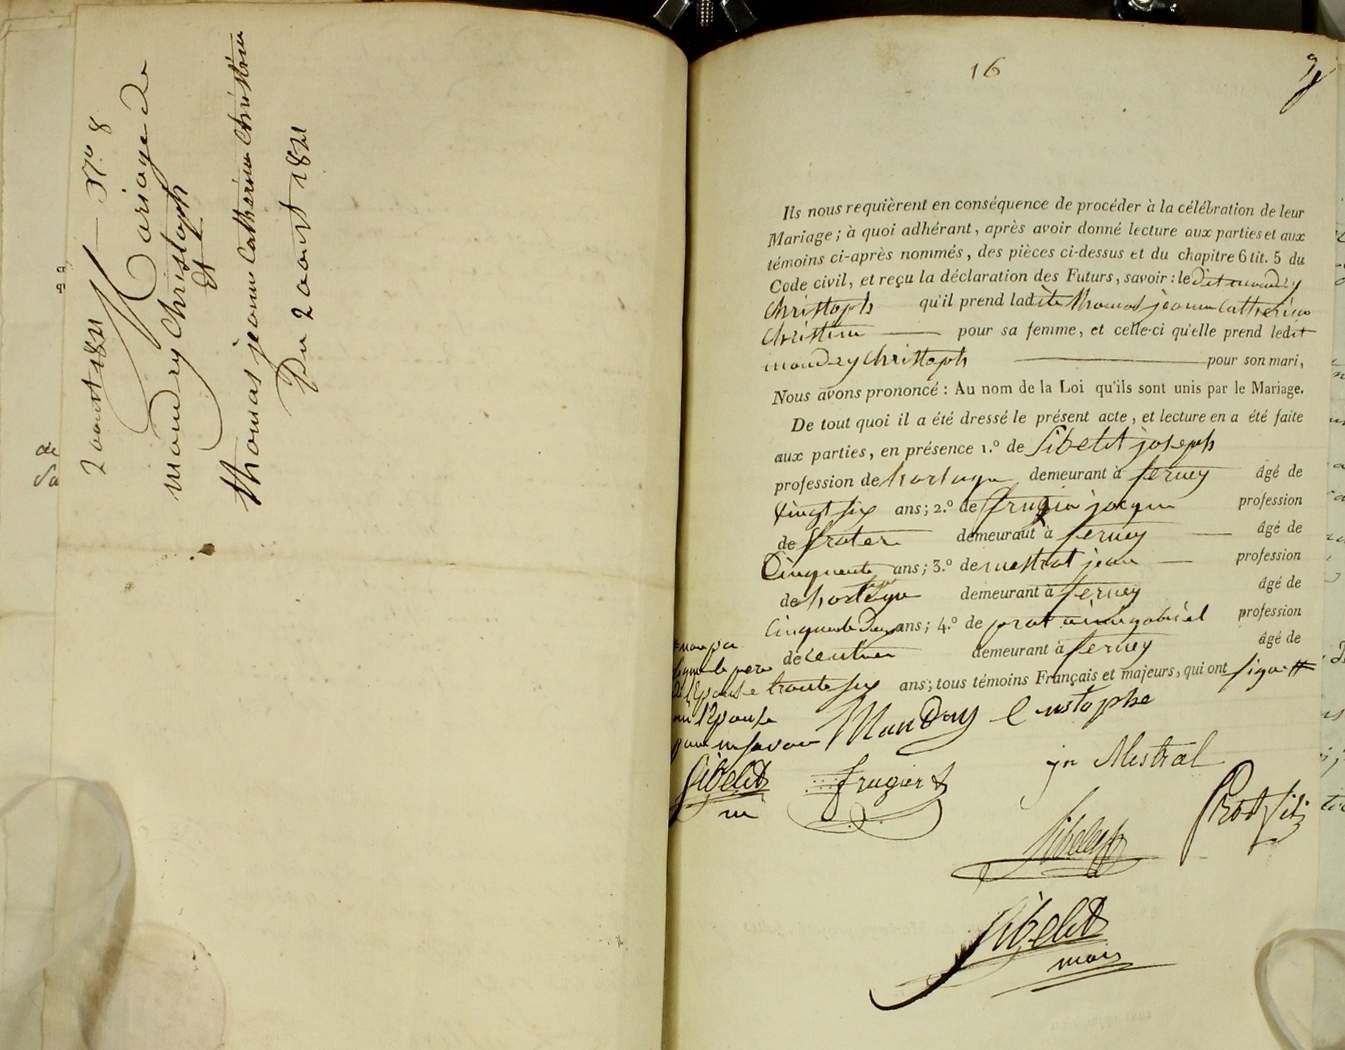 2 aoust 1821 — N.º 8
Mariage de
mandry Christoph
et
thomas jeanne Catherine Christine
Du 2 aoust 1821
de
Sa
16
Ils nous requièrent en conséquence de procéder à la célébration de leur
Mariage ; à quoi adhérant, après avoir donné lecture aux parties et aux
témoins ci-après nommés, des pièces ci-dessus et du chapitre 6 tit. 5 du
Code civil, et reçu la déclaration des Futurs, savoir : le dit mandry
Christoph qu'il prend ladite thomas jeanne Catherine
Christine — pour sa femme, et celle-ci qu'elle prend ledit
mandry Christoph — pour son mari,
Nous avons prononcé : Au nom de la Loi qu'ils sont unis par le Mariage.
De tout quoi il a été dressé le présent acte, et lecture en a été faite
aux parties, en présence 1.º de Sibelit joseph
profession de demeurant à ferney âgé de
Vingt six ans ; 2.º de frugier jacque profession
de frater demeurant à ferney — âgé de
Cinquante ans ; 3.º de mestral jean — profession
de demeurant à ferney âgé de
Cinquante deux ans ; 4.º de prot gabriel profession
de demeurant à ferney âgé de
trante six ans ; tous témoins Français et majeurs, qui ont signé #
# non pa
le pere
de l'Epouse
ni l'Epouse
pour ne savoir
Mandry Cristophe
Sibelit
frugier
jn Mestral
Prot fils
Sibelit
Sibelit
maire